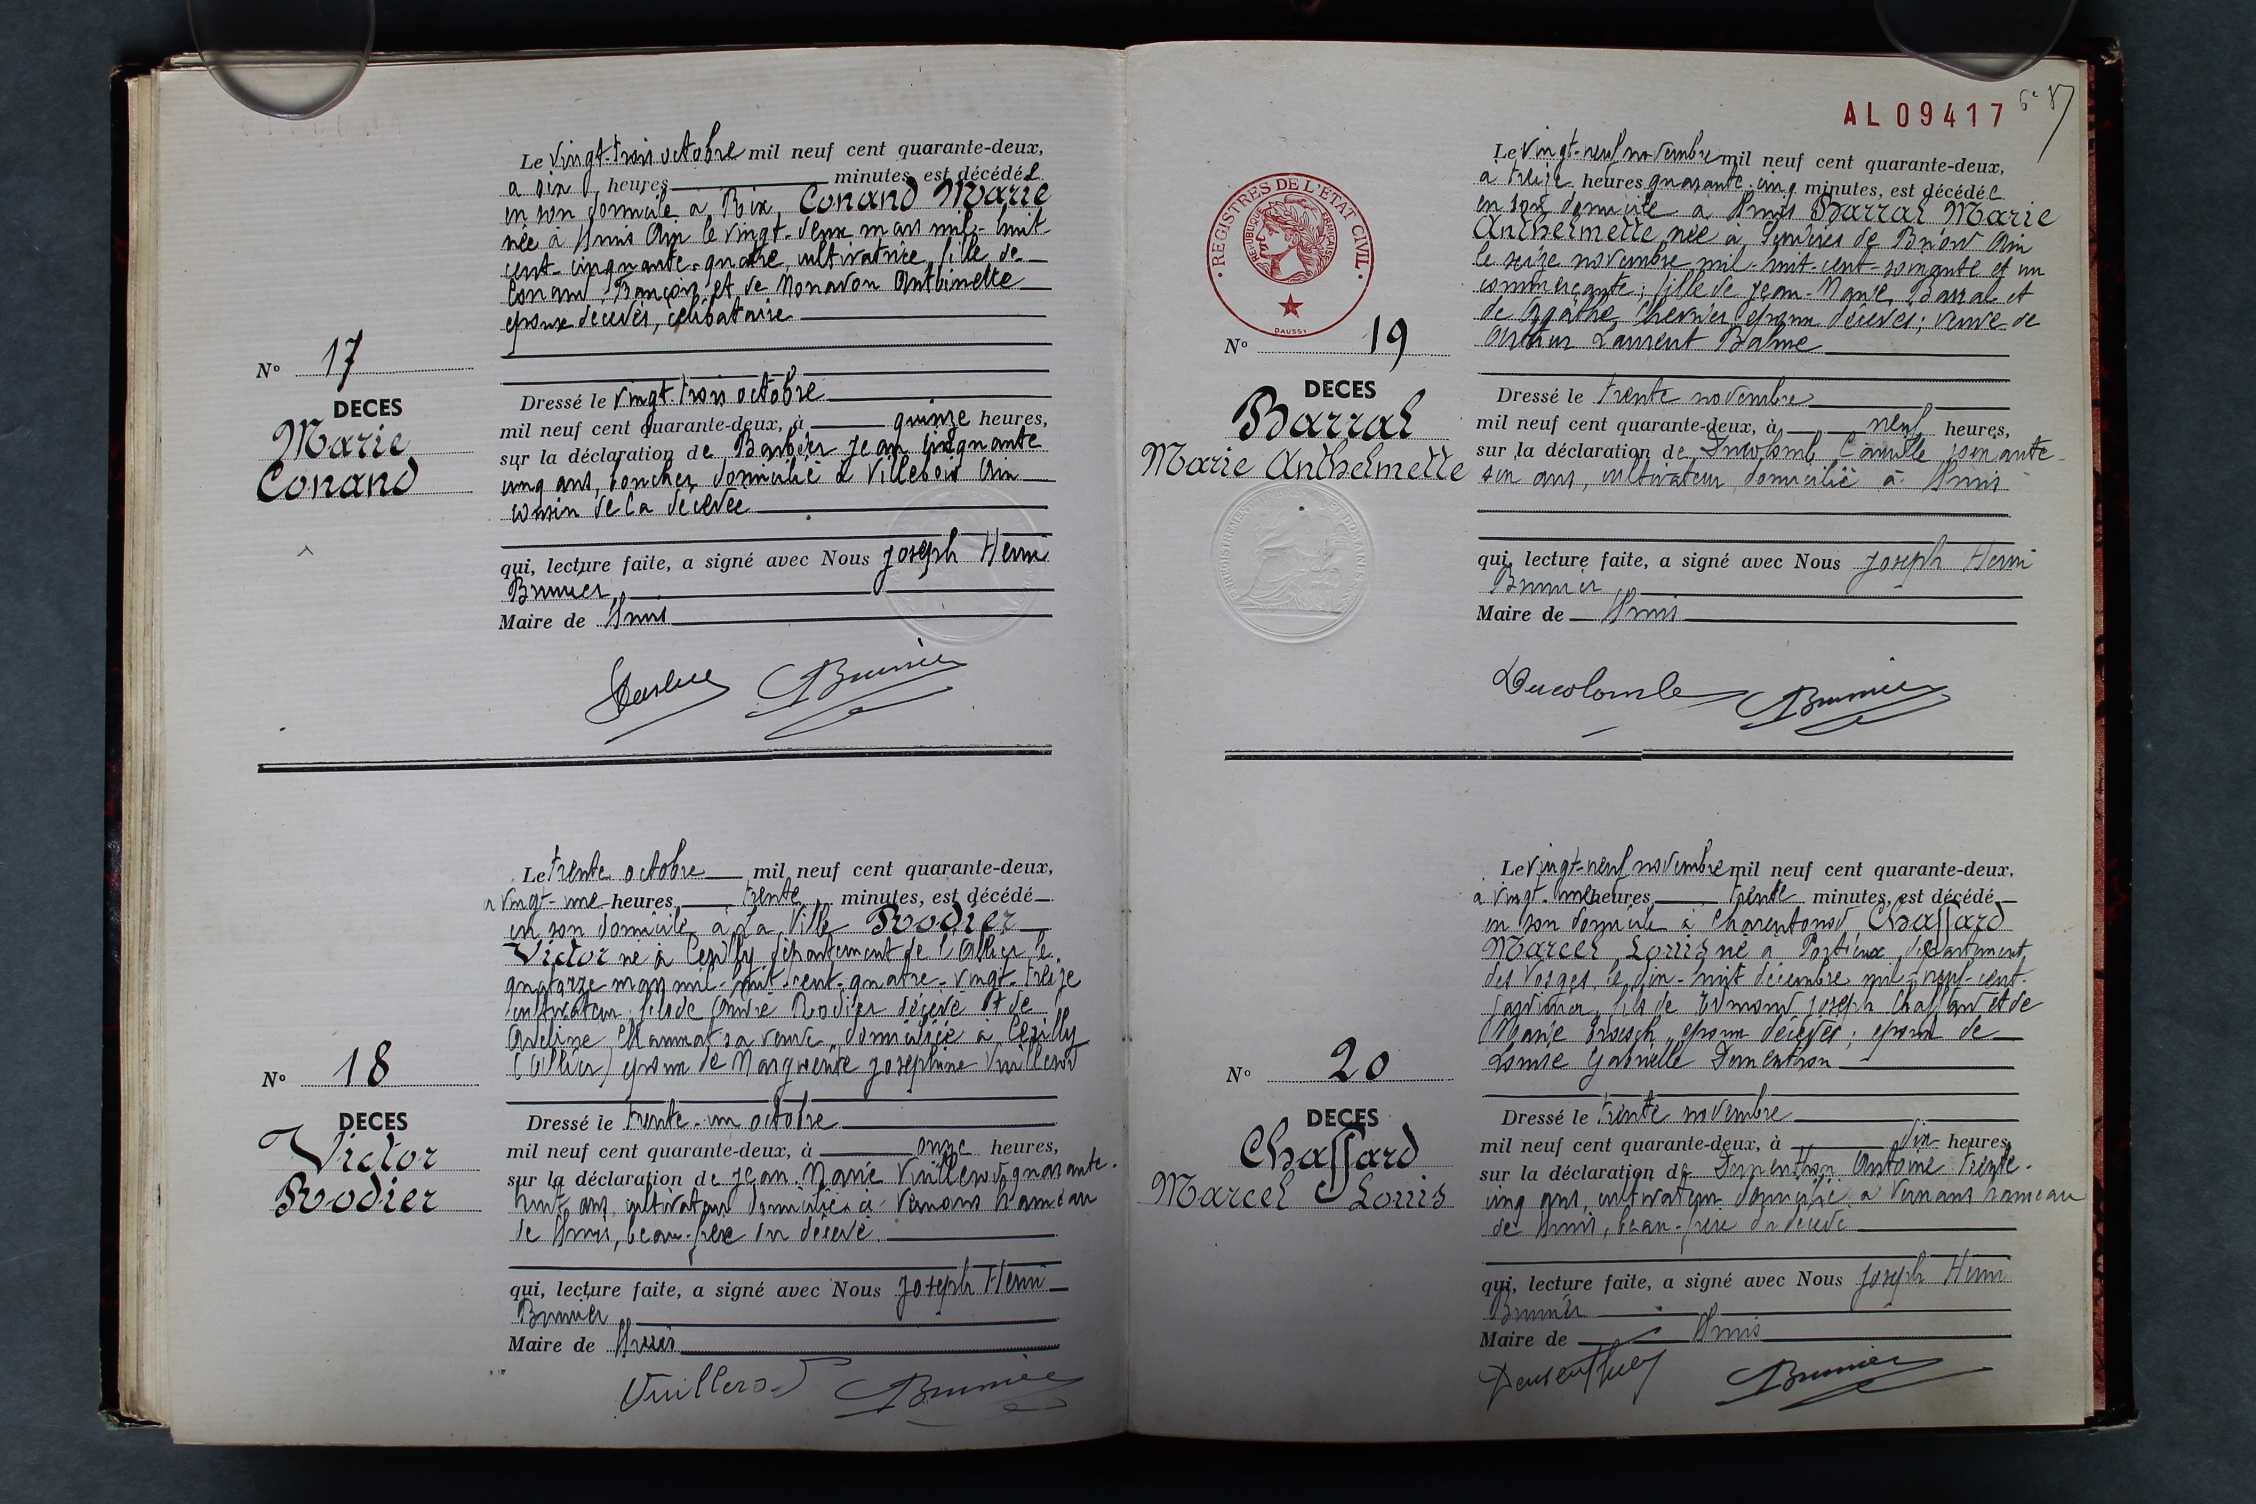 Le vingt-trois octobre mil neuf cent quarante-deux,
à six heures minutes, est décédée
en son domicile à Rix, Conand Marie
née à Ain le vingt-deux mars mil-huit-
cent-cinquante-quatre, cultivatrice, fille de
Conand François et de Monavon Antoinette
époux décédés, célibataire
N° 17
DECES
Marie
Conand
Dressé le vingt-trois octobre
mil neuf cent quarante-deux, à quinze heures,
sur la déclaration de Barbier Jean cinquante
cinq ans, boucher domicilié à Villebois Ain
cousin de la décédée
qui, lecture faite, a signé avec Nous Joseph Henri
Brunier
Maire de
Brunier
Le trente octobre mil neuf cent quarante-deux,
à vingt-une heures trente minutes, est décédé
en son domicile à La Ville Rodier
Victor né à Cérilly département de l'Allier le
quatorze mai mil-huit-cent-quatre-vingt-treize
cultivateur, fils de André Rodier décédé et de
sa veuve, domiciliée à Cérilly
(Allier) époux de Marguerite Joséphine Vuillerod
N° 18
DECES
Victor
Rodier
Dressé le trente-un octobre
mil neuf cent quarante-deux, à onze heures,
sur la déclaration de Jean Marie Vuillerod quarante-
huit ans, cultivateur domicilié à Vernans hameau
de beau-frère du décédé.
qui, lecture faite, a signé avec Nous Joseph Henri
Brunier
Maire de
Vuillerod Brunier
AL 09417
REGISTRES DE L'ETAT CIVIL
REPUBLIQUE FRANCAISE
DAUSSY
Le vingt-neuf novembre mil neuf cent quarante-deux,
à treize heures quarante-cinq minutes, est décédée
en son domicile à Barral Marie
Anthelmette née à Serrières de Briord Ain
le seize novembre mil-huit-cent-soixante et un
commerçante; fille de Jean-Marie Barral et
de Agathe Chervier époux décédés; veuve de
Laurent Balme
N° 19
DECES
Barral
Marie Anthelmette
Dressé le trente novembre
mil neuf cent quarante-deux, à neuf heures,
sur la déclaration de Ducolomb Camille soixante-
six ans, cultivateur, domicilié à
qui, lecture faite, a signé avec Nous Joseph Henri
Brunier
Maire de
Brunier
Le vingt-neuf novembre mil neuf cent quarante-deux,
à vingt-une heures trente minutes, est décédé
en son domicile à Chassard
Marcel Louis né à Portieux, département
des Vosges le dix-huit décembre mil-neuf-cent
fils de Edmond Joseph Chassard et de
Marie époux décédés; époux de
Louise Gabrielle
N° 20
DECES
Chassard
Marcel Louis
Dressé le trente novembre
mil neuf cent quarante-deux, à dix heures,
sur la déclaration de Antoine trente-
cinq ans, cultivateur domicilié à Vernans hameau
de beau-frère du décédé
qui, lecture faite, a signé avec Nous Joseph Henri
Brunier
Maire de
Brunier